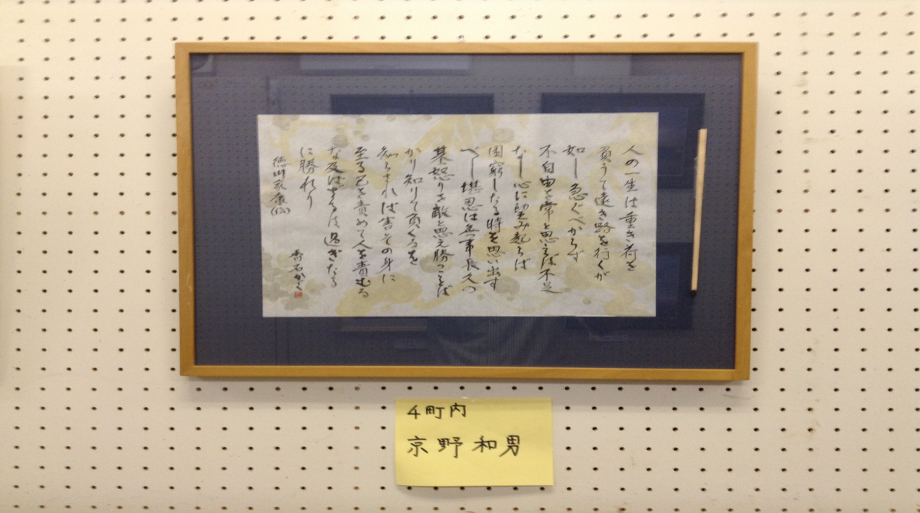 人の一生は重き荷を
負うて遠き路を行くが
如し急ぐべからず
不自由を常と思へば不足
なし心に望み起らば
困窮したる時を思い出す
べし堪忍は無事長久の
基怒りを敵と思え勝つことば
かり知りて負くるを
知らざれば害その身に
至る己を責めて人を責むる
な及ばざるは過ぎたる
に勝れり
徳川家康
4町内
京野和男